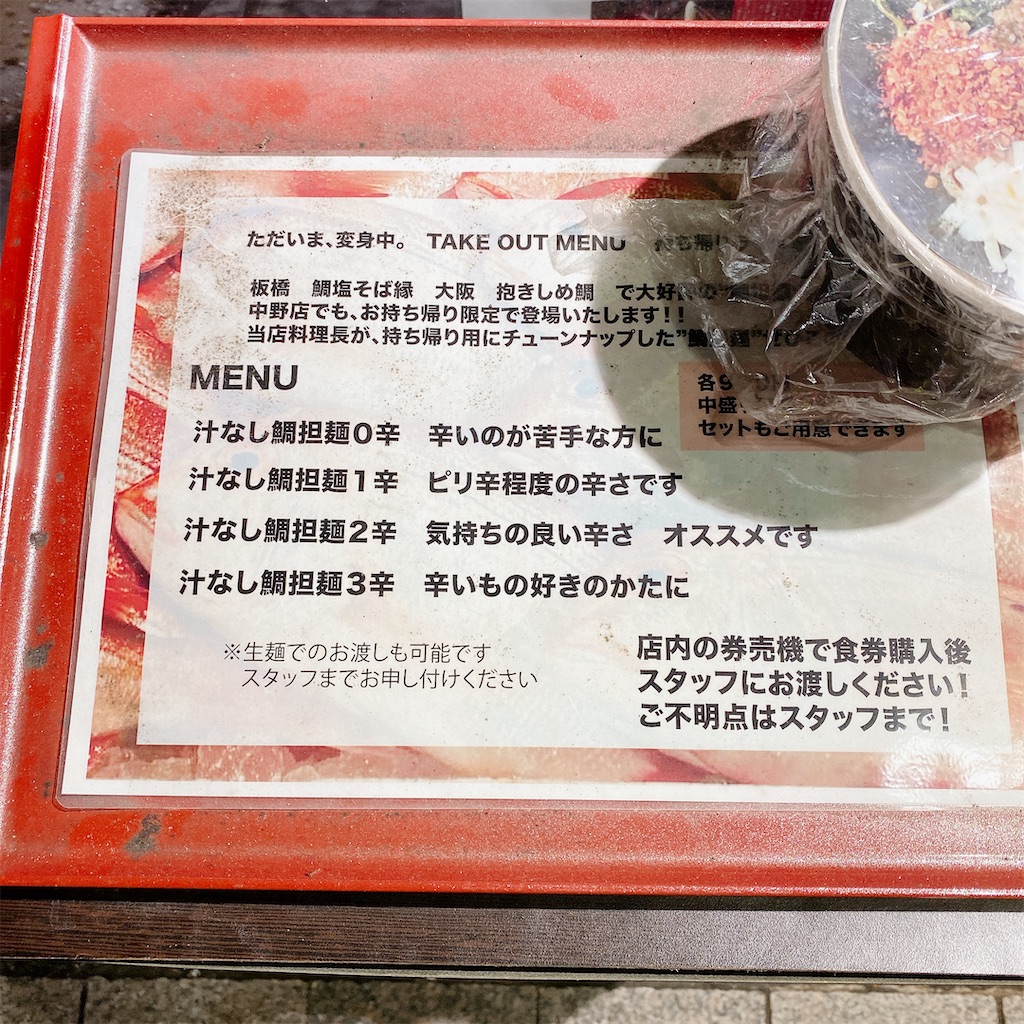 ただいま、変身中。 TAKE OUT MENU
板橋 鯛塩そば縁 大阪 抱きしめ鯛 で大好
中野店でも、お持ち帰り限定で登場いたします！！
当店料理長が、持ち帰り用にチューンナップした
MENU
各9
中盛
セットもご用意できます
汁なし鯛担麺0辛 辛いのが苦手な方に
汁なし鯛担麺1辛 ピリ辛程度の辛さです
汁なし鯛担麺2辛 気持ちの良い辛さ オススメです
汁なし鯛担麺3辛 辛いもの好きのかたに
※生麺でのお渡しも可能です
スタッフまでお申し付けください
店内の券売機で食券購入後
スタッフにお渡しください！
ご不明点はスタッフまで！